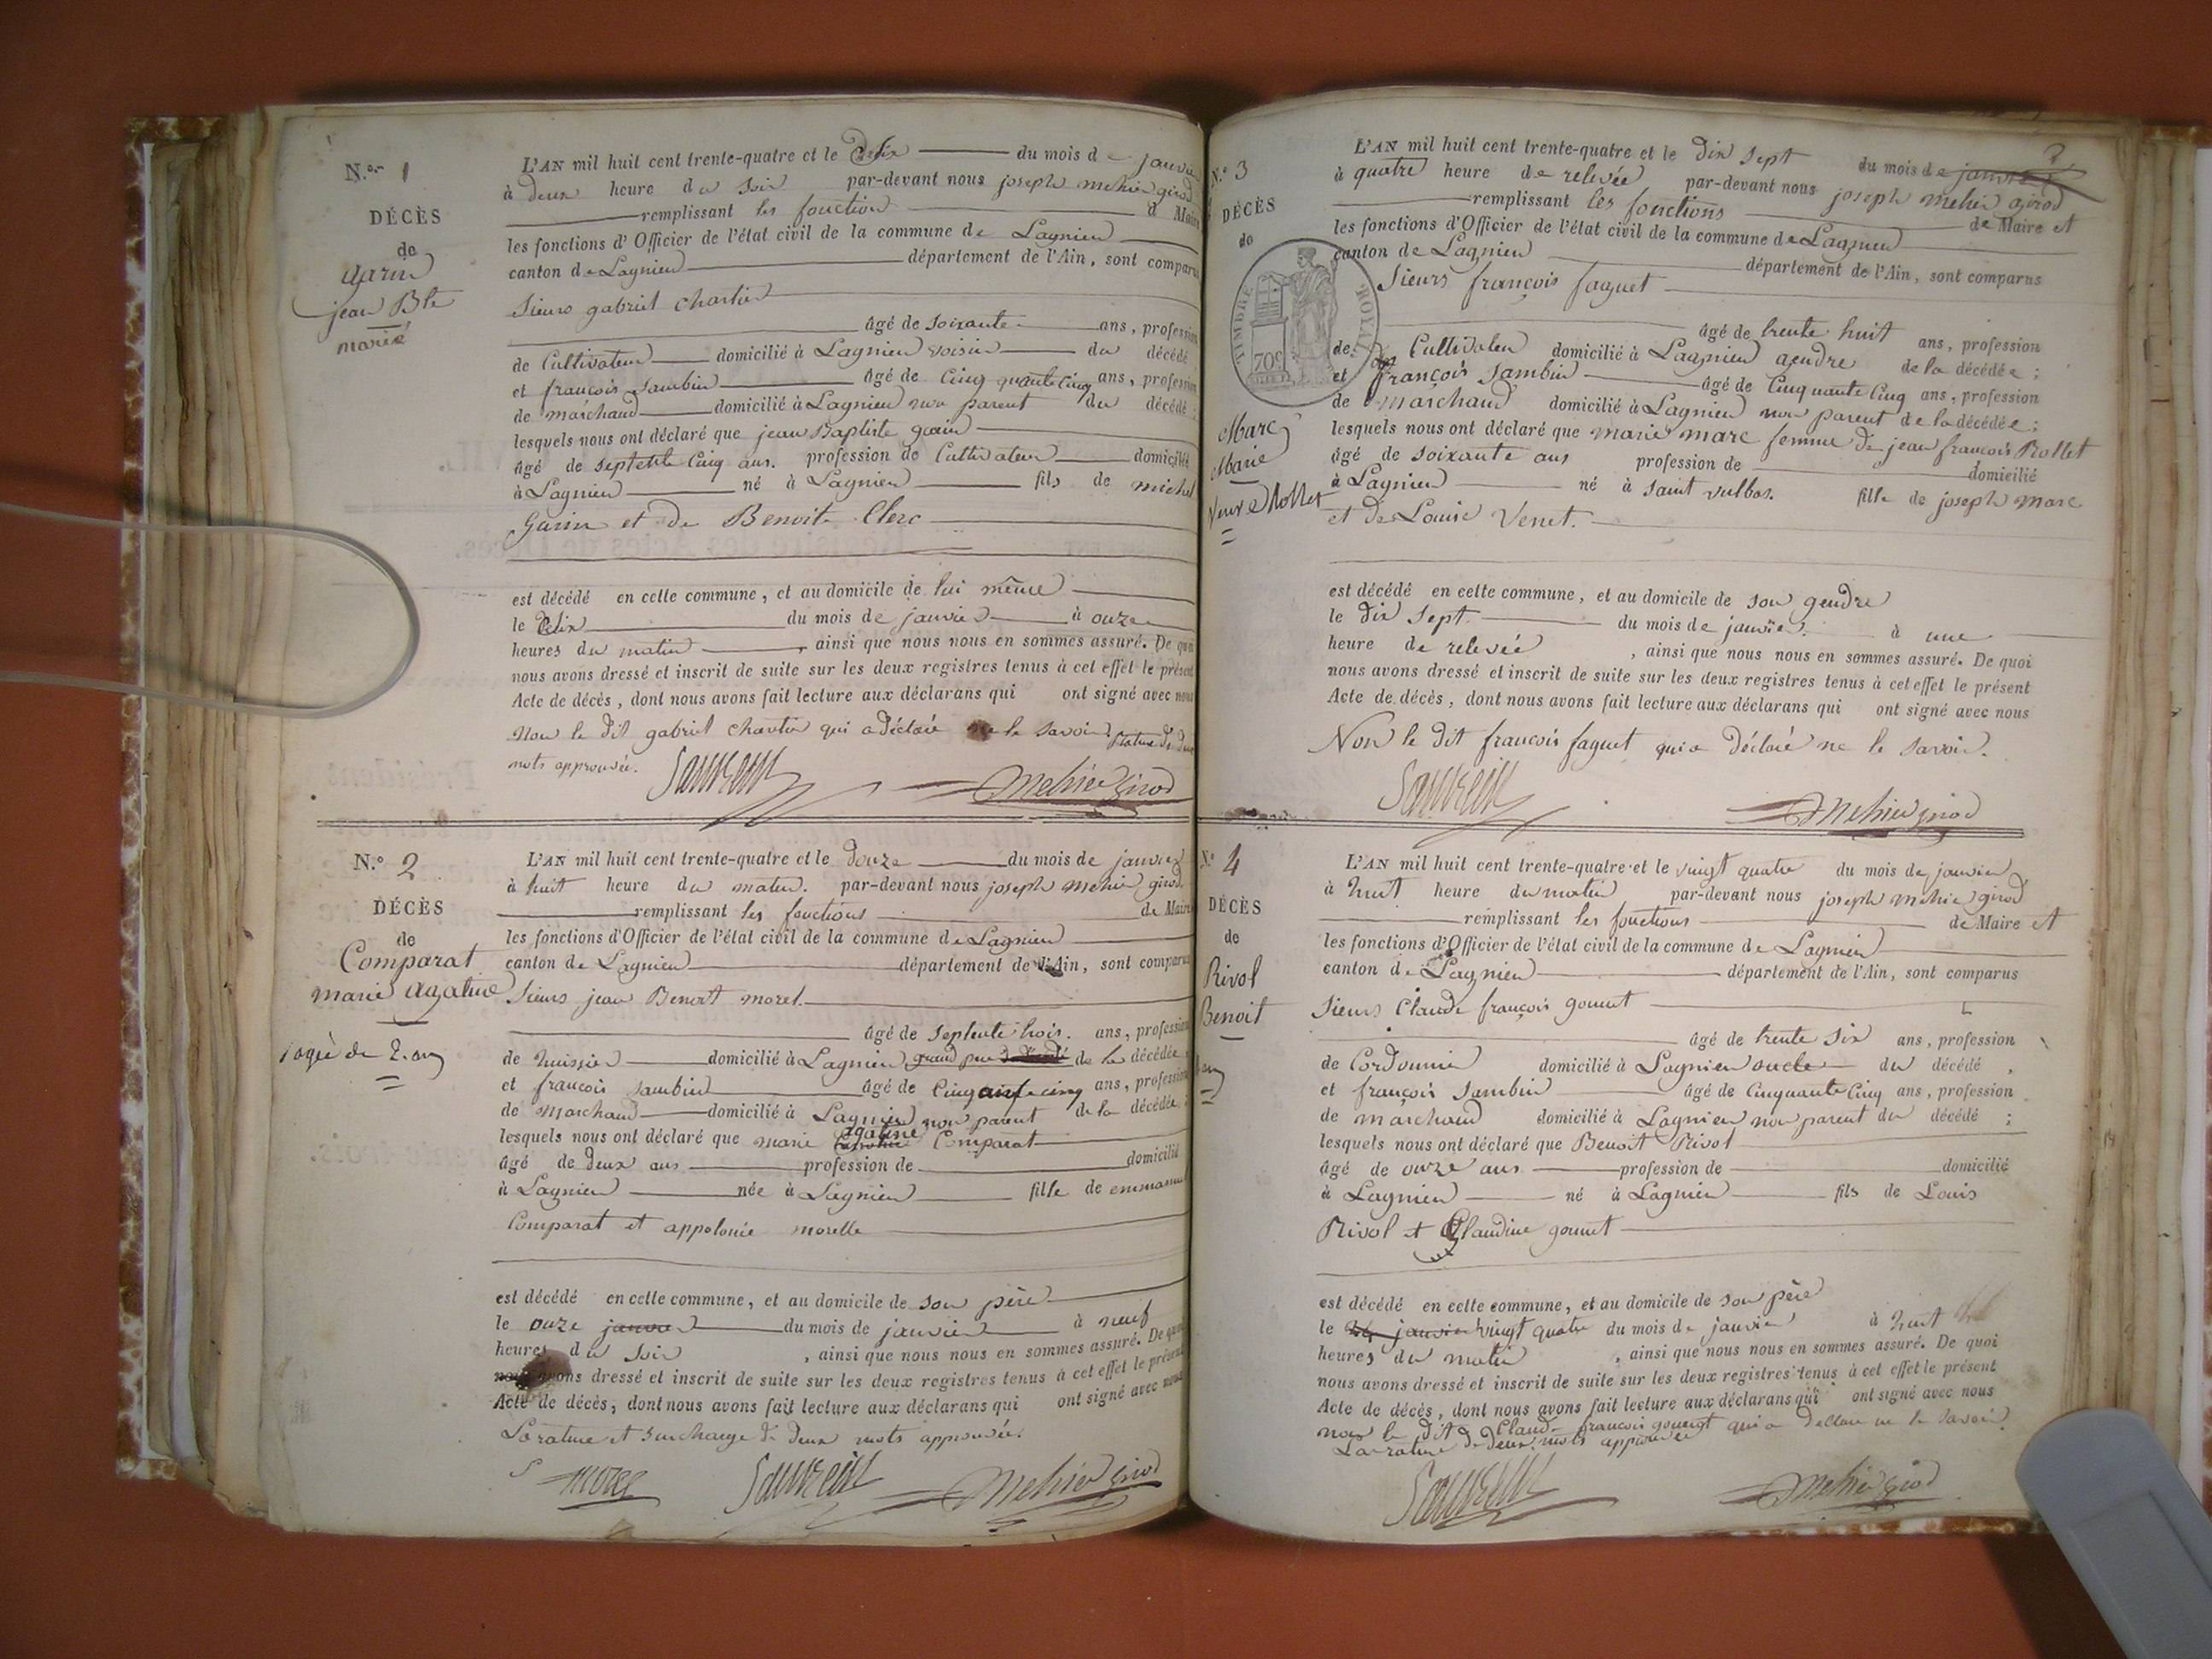 N.o 1
DÉCÈS
de
garin
jean Bte
marié
L'AN mil huit cent trente-quatre et le dix du mois de janvier
à deux heure du soir par-devant nous joseph mehier girod
remplissant les fonction d Maire
les fonctions d'Officier de l'état civil de la commune de Lagnieu
canton de Lagnieu département de l'Ain, sont comparus
Sieurs gabriel chartier
âgé de soixante ans, profession
de Cultivateur domicilié à Lagnieu voisin du décédé
et françois sambin âgé de Cinq quante cinq ans, profession
de marchand domicilié à Lagnieu non parent du décédé;
lesquels nous ont déclaré que jean Baptiste garin
âgé de septente Cinq ans. profession de Cultivateur domicilié
à Lagnieu né à Lagnieu fils de michel
Garin et de Benoite Clerc
est décédé en cette commune, et au domicile de lui même
le dix du mois de janvier à onze
heures du matin, ainsi que nous nous en sommes assuré. De quoi
nous avons dressé et inscrit de suite sur les deux registres tenus à cet effet le présent
Acte de décès, dont nous avons fait lecture aux déclarans qui ont signé avec nous
Non le dit gabriel chartier qui a déclaré ne le savoir
mots approuvée.
mehier girod
N.o 2
DÉCÈS
de
Comparat
marie agatine
agée de 2. ans
L'AN mil huit cent trente-quatre et le douze du mois de janvier
à huit heure du matin. par-devant nous joseph mehier girod
remplissant les fonctions de Maire
les fonctions d'Officier de l'état civil de la commune de Lagnieu
canton de Lagnieu département de l'Ain, sont comparus
Sieurs jean Benoit morel.
âgé de septente trois. ans, profession
de huissier domicilié à Lagnieu grand père de la décédée
et françois sambin âgé de Cinquante cinq ans, profession
de marchand domicilié à Lagnieu non parent de la décédée;
agatine
lesquels nous ont déclaré que marie Comparat
âgé de deux ans profession de domicilié
à Lagnieu née à Lagnieu fille de emmanuel
Comparat et appolonie morelle
est décédé en cette commune, et au domicile de son père
le onze janvier du mois de janvier à neuf
heures du soir, ainsi que nous nous en sommes assuré. De quoi
nous avons dressé et inscrit de suite sur les deux registres tenus à cet effet le présent
Acte de décès, dont nous avons fait lecture aux déclarans qui ont signé avec nous
La rature et surcharge de deux mots approuvée.
morel mehier girod
2
N.o 3
DÉCÈS
de
TIMBRE ROYAL
70c
Marc
Marie
veuve Rollet
L'AN mil huit cent trente-quatre et le dix sept du mois de janvier
à quatre heure de relevée par-devant nous joseph mehier girod
remplissant les fonctions de Maire et
les fonctions d'Officier de l'état civil de la commune de Lagnieu
canton de Lagnieu département de l'Ain, sont comparus
Sieurs françois faguet
âgé de trente huit ans, profession
de Cultivateur domicilié à Lagnieu gendre de la décédée;
et françois Sambin âgé de Cinquante Cinq ans, profession
de marchand domicilié à Lagnieu non parent de la décédée;
lesquels nous ont déclaré que marie marc femme de jean françois Rollet
âgé de soixante ans profession de domicilié
à Lagnieu né à saint vulbas. fille de joseph marc
et de Louise Venet.
est décédé en cette commune, et au domicile de son gendre
le dix sept. du mois de janvier. à une
heure de relevée, ainsi que nous nous en sommes assuré. De quoi
nous avons dressé et inscrit de suite sur les deux registres tenus à cet effet le présent
Acte de décès, dont nous avons fait lecture aux déclarans qui ont signé avec nous
Non le dit françois faguet qui a déclaré ne le savoir.
mehier girod
N.o 4
DÉCÈS
de
Rivol
Benoit
ans
L'AN mil huit cent trente-quatre et le vingt quatre du mois de janvier
à huit heure du matin par-devant nous joseph mehier girod
remplissant les fonctions de Maire et
les fonctions d'Officier de l'état civil de la commune de Lagnieu
canton de Lagnieu département de l'Ain, sont comparus
Sieurs Claude françois gonnet
âgé de trente six ans, profession
de Cordonnier domicilié à Lagnieu oncle du décédé,
et françois Sambin âgé de Cinquante Cinq ans, profession
de marchand domicilié à Lagnieu non parent du décédé;
lesquels nous ont déclaré que Benoit Rivol
âgé de onze ans profession de domicilié
à Lagnieu né à Lagnieu fils de Louis
Rivol et Claudine gonnet
est décédé en cette commune, et au domicile de son père
le 24 janvier vingt quatre du mois de janvier à huit
heures du matin, ainsi que nous nous en sommes assuré. De quoi
nous avons dressé et inscrit de suite sur les deux registres tenus à cet effet le présent
Acte de décès, dont nous avons fait lecture aux déclarans qui ont signé avec nous
non le dit Claude françois gonnet qui a declaré ne le savoir
La rature de deux mots approuvée
mehier girod